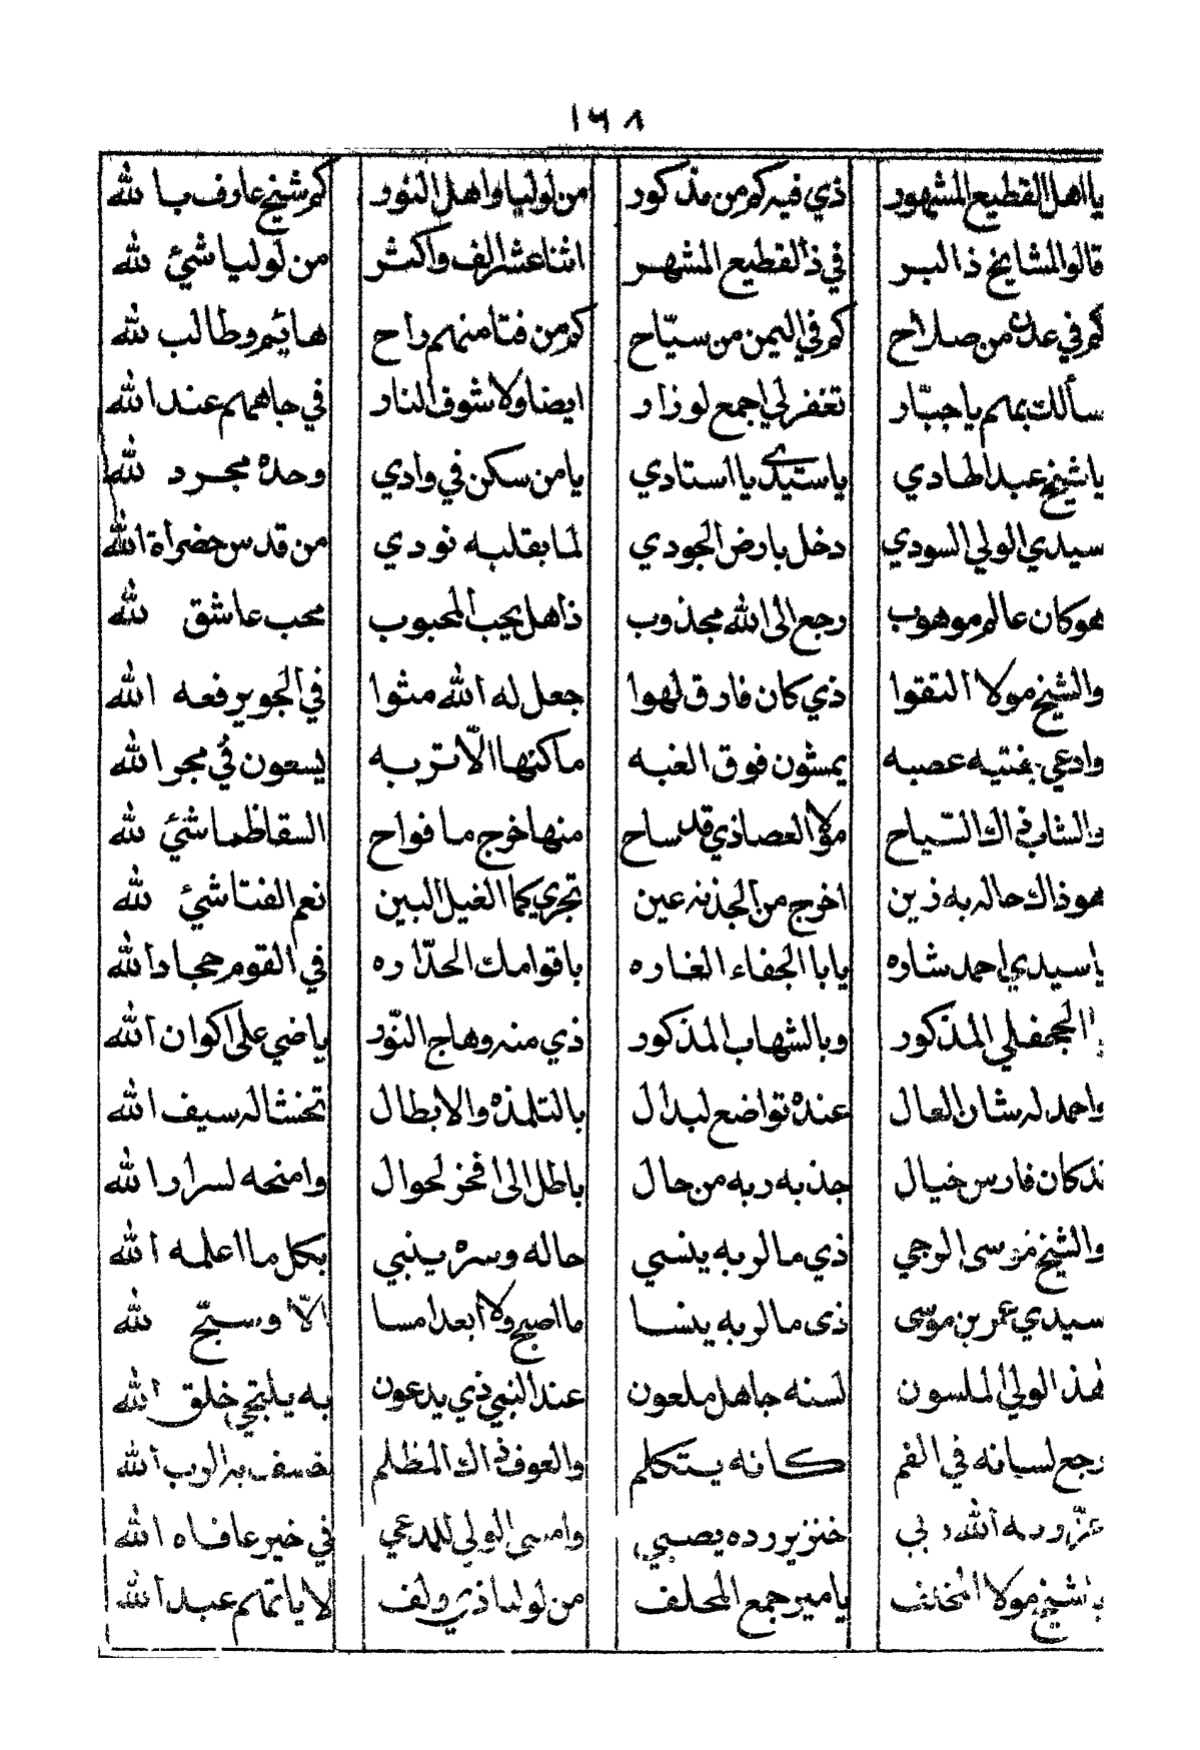 ١٦٨
يا اهل القطيع المشهور ذي فيه كم من مذكور من لوليا واهل النور كم شيخ عارف بالله
قالو المشايخ ذا البر في ذا القطيع المشهر اثنا عشر الف واكثر من لوليا شيئ لله
كم في عدن من صلاح كم في اليمن من سيّاح كم من فتا منهم راح هايم وطالب لله
سألك بهم يا جبّار تغفر لي اجمع لوزار ايضا ولا شوف النار في جاههم عند الله
يا شيخ عبد الهادي يا سيدي يا استادي يا من سكن في وادي وحده مجرد لله
سيدي الولي السودي دخل بارض الجودي لما بقلبه نودي من قدس حضرأة الله
هو كان عالم موهوب رجع الى الله مجذوب ذاهل بحب المحبوب محب عاشق لله
والشيخ مولا التقوا ذي كان فارق لهوا جعل له الله مثوا في الجو ير فعه الله
وادعي بفتيه عصبه يمشون فوق الغبه ما كنها الّا تربه يسعون في مجرا لله
والشاب ذاك السّياح مولا العصا ذي قد ساح منها خرج ما فواح السقا ظما شيئ لله
هو ذاك حاله به زين اخرج من الجذنه عين تجري كما الغيل البين نعم الفتا شيئ لله
يا سيدي احمد شاره يا با الجفاء الغاره باقوامك الحدّاره في القوم حجاد الله
الجحفلي المذكور وبالشهاب المذكور ذي منه وهاج النّور ياضي على اكوان الله
واحمد له شان العال عنده تواضع لبدال بالتلمذه والابطال تخشاله سيف الله
كان فارس خيال جذبه ربه من حال باطل الى افخر لحوال وامنحه لسرار الله
والشيخ موسى الوجي ذي مالربه ينسي حاله وسره ينبي بكل ما اعلمه الله
سيدي عمر بن موسى ذى مالربه ينسا ما اصبح ولا ابعد امسا الّا وسبّح لله
هذا الولي الملسون لسنه جاهل ملعون عند النبي ذي يدعون به يلتجي خلق الله
رجع لسانه في الفم كانه يتكلم والعوف ذاك المظلم خسف به الرب الله
عزّ وربه الله ربي خنزير رده يصبي وامسى الولي للمدعي في خير عافاه الله
يا شيخ مولا المخلف يا مير جمع المحلف من لوليا ذي ولف لا ياتهم عبد الله